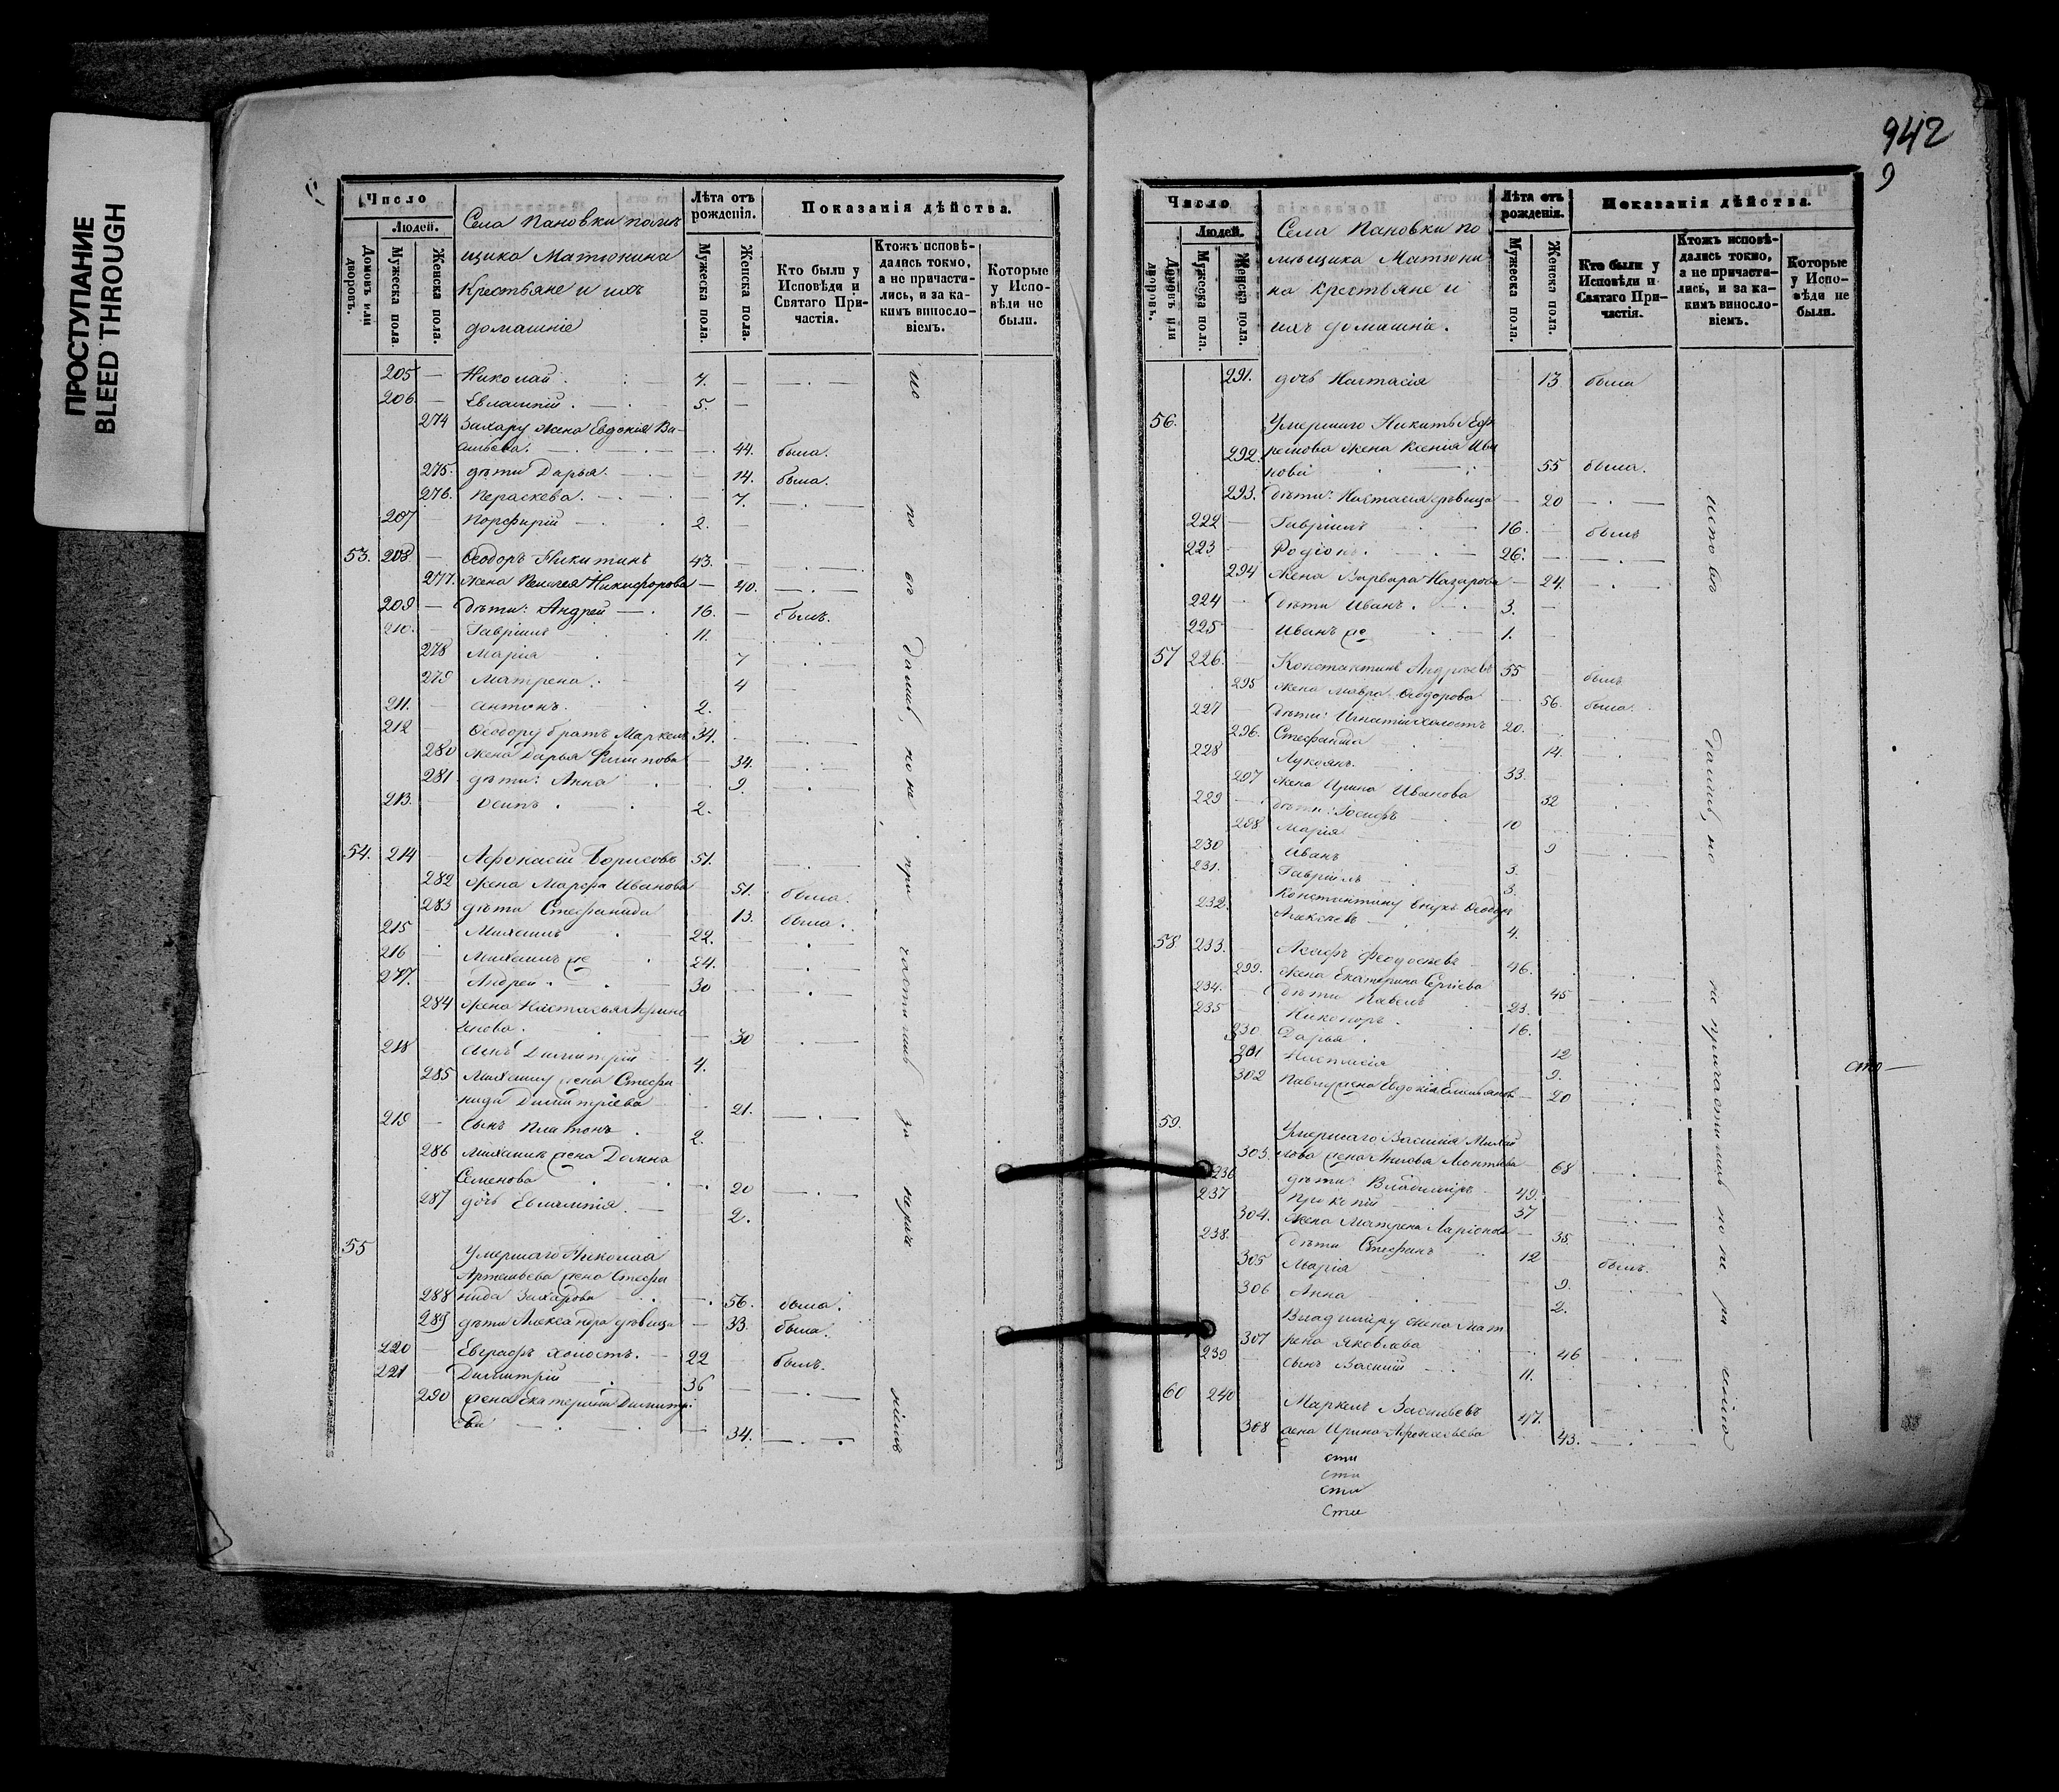 ПРОСТУПАНИЕ
BLEED THROUGH
Число
Людей.
Домовъ или дворовъ.
Мужеска пола.
Женска пола.
Села Пановки помѣ
щика Матюнина
Крестьяне и ихъ
домашніе
Лѣта отъ рожденія.
Мужеска пола.
Женска пола.
Показанія дѣйства.
Кто были у Исповѣди и Святаго Причастія.
Ктожъ исповѣдались токмо, а не причастились, и за какимъ винословіемъ.
Которые у Исповѣди не были.
205 — Николай. 7. —
206 — Евлампій. 5. —
274 Захару жена Евдокія Ва-
сильева. — 44. была.
275. дѣти Дарья. — 14. была.
276. Пераскева. — 7.
207 — Порфирій — 2. —
53. 208 — Ѳеодоръ Никитинъ 43. —
277. жена Пелагея Никифорова — 40.
209 — дѣти: Андрей — 16. — былъ.
210. — Гавріилъ 11.
278 Марія 7
279 Матрена. 4
211. — Антонъ. 2.
212 Ѳеодору братъ Маркелъ 34.
280 жена Дарья Филипова — 34.
281 дѣти: Анна 9.
213. — Осипъ. 2.
54. 214 — Афонасій Борисовъ 51.
282 жена Марфа Иванова 51. была.
283 дѣти Стефанида 13. была.
215 Михаилъ 22.
216 Михаилъ же 24.
217. Андрей. 30
284 жена Настасья
30
218 — сынъ Димитрій 4.
285 Михаилу жена Стефа
нида Димитріева 21.
219 — Сынъ Платонъ 2.
286 Михаилъ жена Домна
Семенова 20
287 дочь Евлампія. — 2.
55 Умершаго Николая
Артемьева жена Стефа
288 нида Захарова 56. была.
289 дѣти Александра дѣвица — 33. была.
220 — Евграфъ холостъ. 22 былъ.
221 Димитрій 36 —
290 жена Екатерина Димитрі
ева — 34.
исповѣдались, но не причастились за нерачи
942
9
Число
Людей.
Домовъ или дворовъ.
Мужеска пола.
Женска пола.
Села Пановки по
мѣщика Матюни
на крестьяне и
ихъ домашніе.
Лѣта отъ рожденія.
Мужеска пола.
Женска пола.
Показанія дѣйства.
Кто были у Исповѣди и Святаго Причастія.
Ктожъ исповѣдались токмо, а не причастились, и за какимъ винословіемъ.
Которые у Исповѣди не были.
291. дочь Настасія 13 была
56. Умершаго Никиты Ефи
292. жена Ксенія Ива
нова 55 была.
293. дѣти: Настасія дѣвица — 20
222 — Гавріилъ 16. — былъ
223 — Родіонъ. 26. —
294 жена Варвара Назарова — 24.
224 — дѣти Иванъ. 3. —
225 — Иванъ же 1.
57 226. — Константинъ Андреевъ 55 былъ
295 жена Мавра Ѳеодорова 56. была.
227 дѣти: Игнатій холостъ 20.
296. Стефанида 14.
228 Лукоянъ. 33.
297 жена Ирина Иванова 32
229 — дѣти: Іосифъ 10
298 Марія 9
230 Иванъ 3.
231. Гавріилъ 3.
232. Константину внукъ Ѳеодоръ
4.
58 233. 46.
299. жена Екатерина Сергіева 45
234. дѣти Павелъ 23.
235 Никоноръ. 16.
300 Дарья. 12
301 Настасія 9.
302 Павлу жена Евдокія — 20
59. Умершаго Василія Михай
303. лова жена 68
236 дѣти: Владиміръ 49.
237 Прокопій 37
304. жена Матрена Ларіонова 35.
238. дѣти Стефанъ 12 былъ.
305 Марія 9.
306 Анна 2.
Владиміру жена Мат
307 рена Яковлева 46
239 сынъ Василій 11.
60 240 Маркелъ Васильевъ 47.
308 жена Ирина Афонасьева 43.
исповѣдались, но не причастились по не ра
сто —
сти
сти
сти
Сти